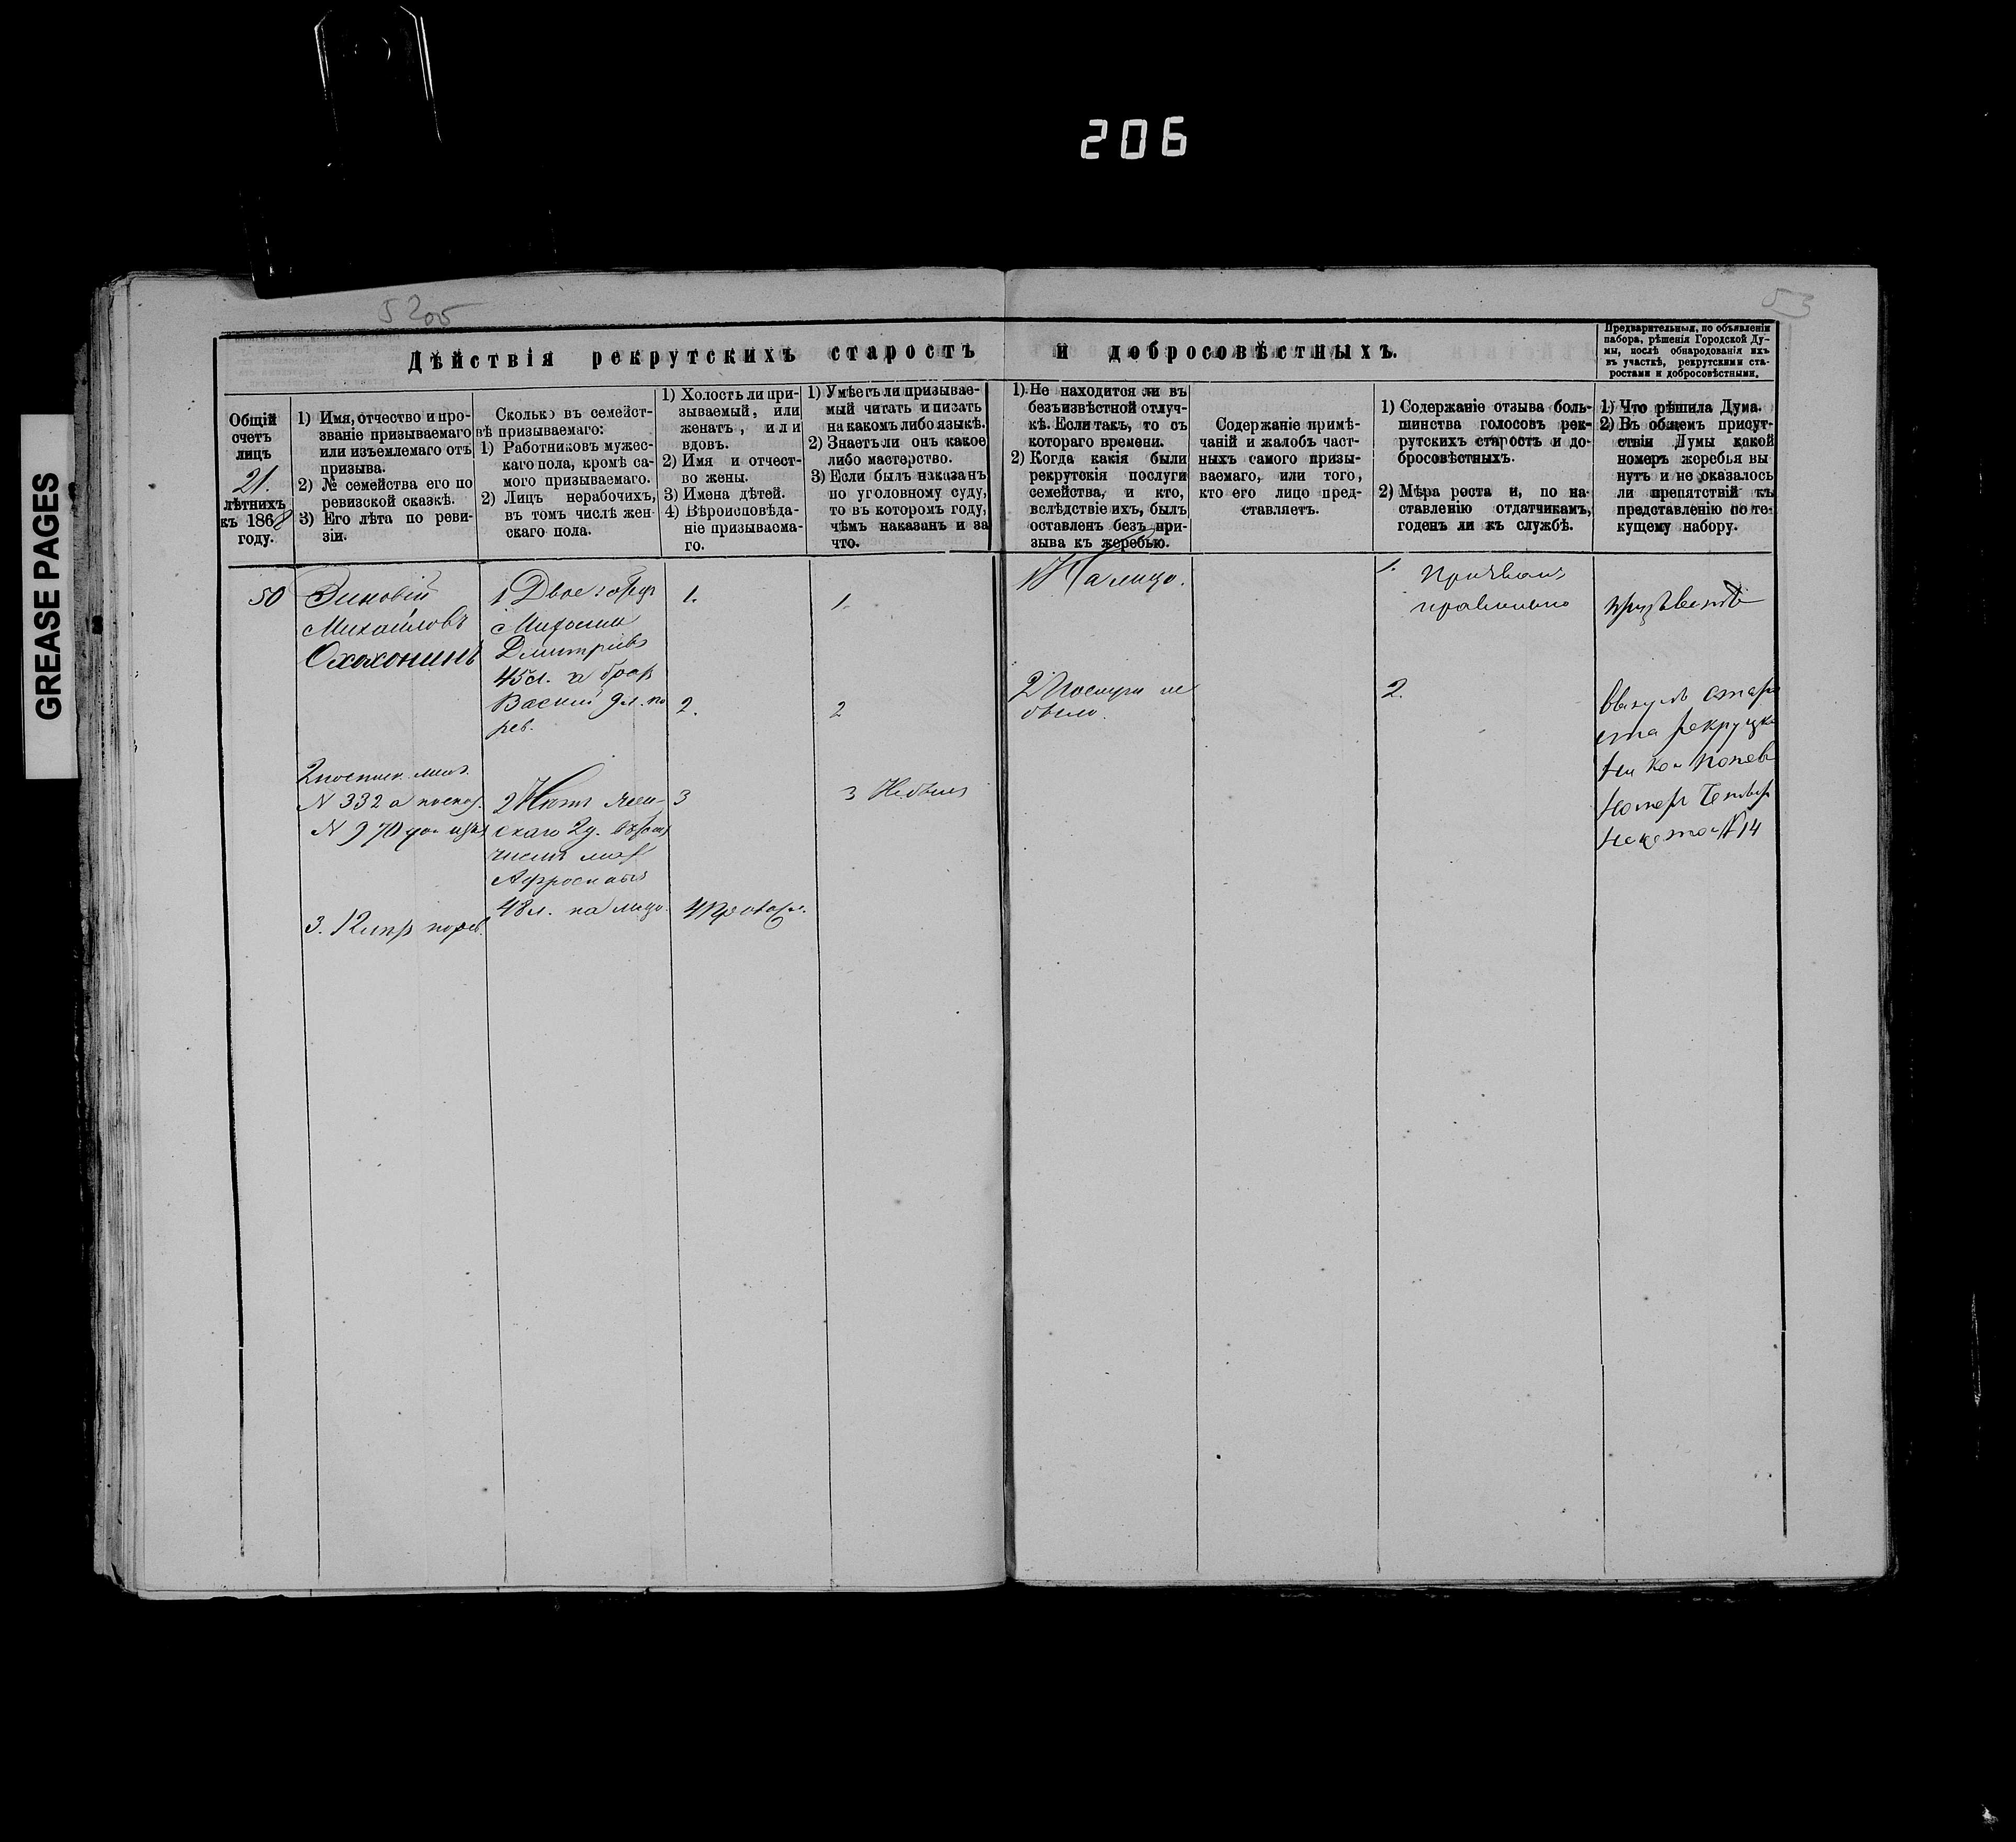 206
GREASE PAGES
5205
53
Дѣйствія рекрутскихъ старостъ и добросовѣстныхъ.
Предварительныя, по объявленіи
набора, рѣшенія Городской Ду-
мы, послѣ обнародованія ихъ
въ участкѣ, рекрутскими ста-
ростами и добросовѣстными.
Общій
счетъ
лицъ
21
лѣтнихъ
къ 1868
году.
1) Имя, отчество и про-
званіе призываемаго
или изъемлемаго отъ
призыва.
2) № семейства его по
ревизской сказкѣ.
3) Его лѣта по реви-
зіи.
Сколько въ семейст-
вѣ призываемаго:
1) Работниковъ мужес-
каго пола, кромѣ са-
мого призываемаго.
2) Лицъ нерабочихъ,
въ томъ числѣ жен-
скаго пола.
1) Холостъ ли при-
зываемый, или
женатъ, или
вдовъ.
2) Имя и отчест-
во жены.
3) Имена дѣтей.
4) Вѣроисповѣда-
ніе призываема-
го.
1) Умѣетъ ли призывае-
мый читать и писать
на какомъ либо языкѣ.
2) Знаетъ ли онъ какое
либо мастерство.
3) Если былъ наказанъ
по уголовному суду,
то въ которомъ году,
чѣмъ наказанъ и за
что.
1) Не находится ли въ
безъизвѣстной отлуч-
кѣ. Если такъ, то съ
котораго времени.
2) Когда какія были
рекрутскія послуги
семейства, и кто,
вслѣдствіе ихъ, былъ
оставленъ безъ при-
зыва къ жеребью.
Содержаніе примѣ-
чаній и жалобъ част-
ныхъ самого призы-
ваемаго, или того,
кто его лицо пред-
ставляетъ.
1) Содержаніе отзыва боль-
шинства голосовъ рек-
рутскихъ старостъ и до-
бросовѣстныхъ.
2) Мѣра роста и, по на-
ставленію отдатчикамъ,
годенъ ли къ службѣ.
1) Что рѣшила Дума.
2) Въ общемъ присут-
ствіи Думы какой
номеръ жеребья вы
нутъ и не оказалось
ли препятствій къ
представленію по те-
кущему набору.
50
Зиновій
Михайловъ
Охохонинъ
2
N 332 а
N 970
3. 12
1 Двое
Дмитріевъ
45 л. и
Василій 9 л. по
рев.
2
скаго 2
числѣ
48 л. на лицо.
1.
2.
3
4
1.
2
3 Небылъ
1 На лицо.
2 Послуги не
было.
1. Призванъ
правильно
2.
рекрутск
Попов
номеръ
N 14